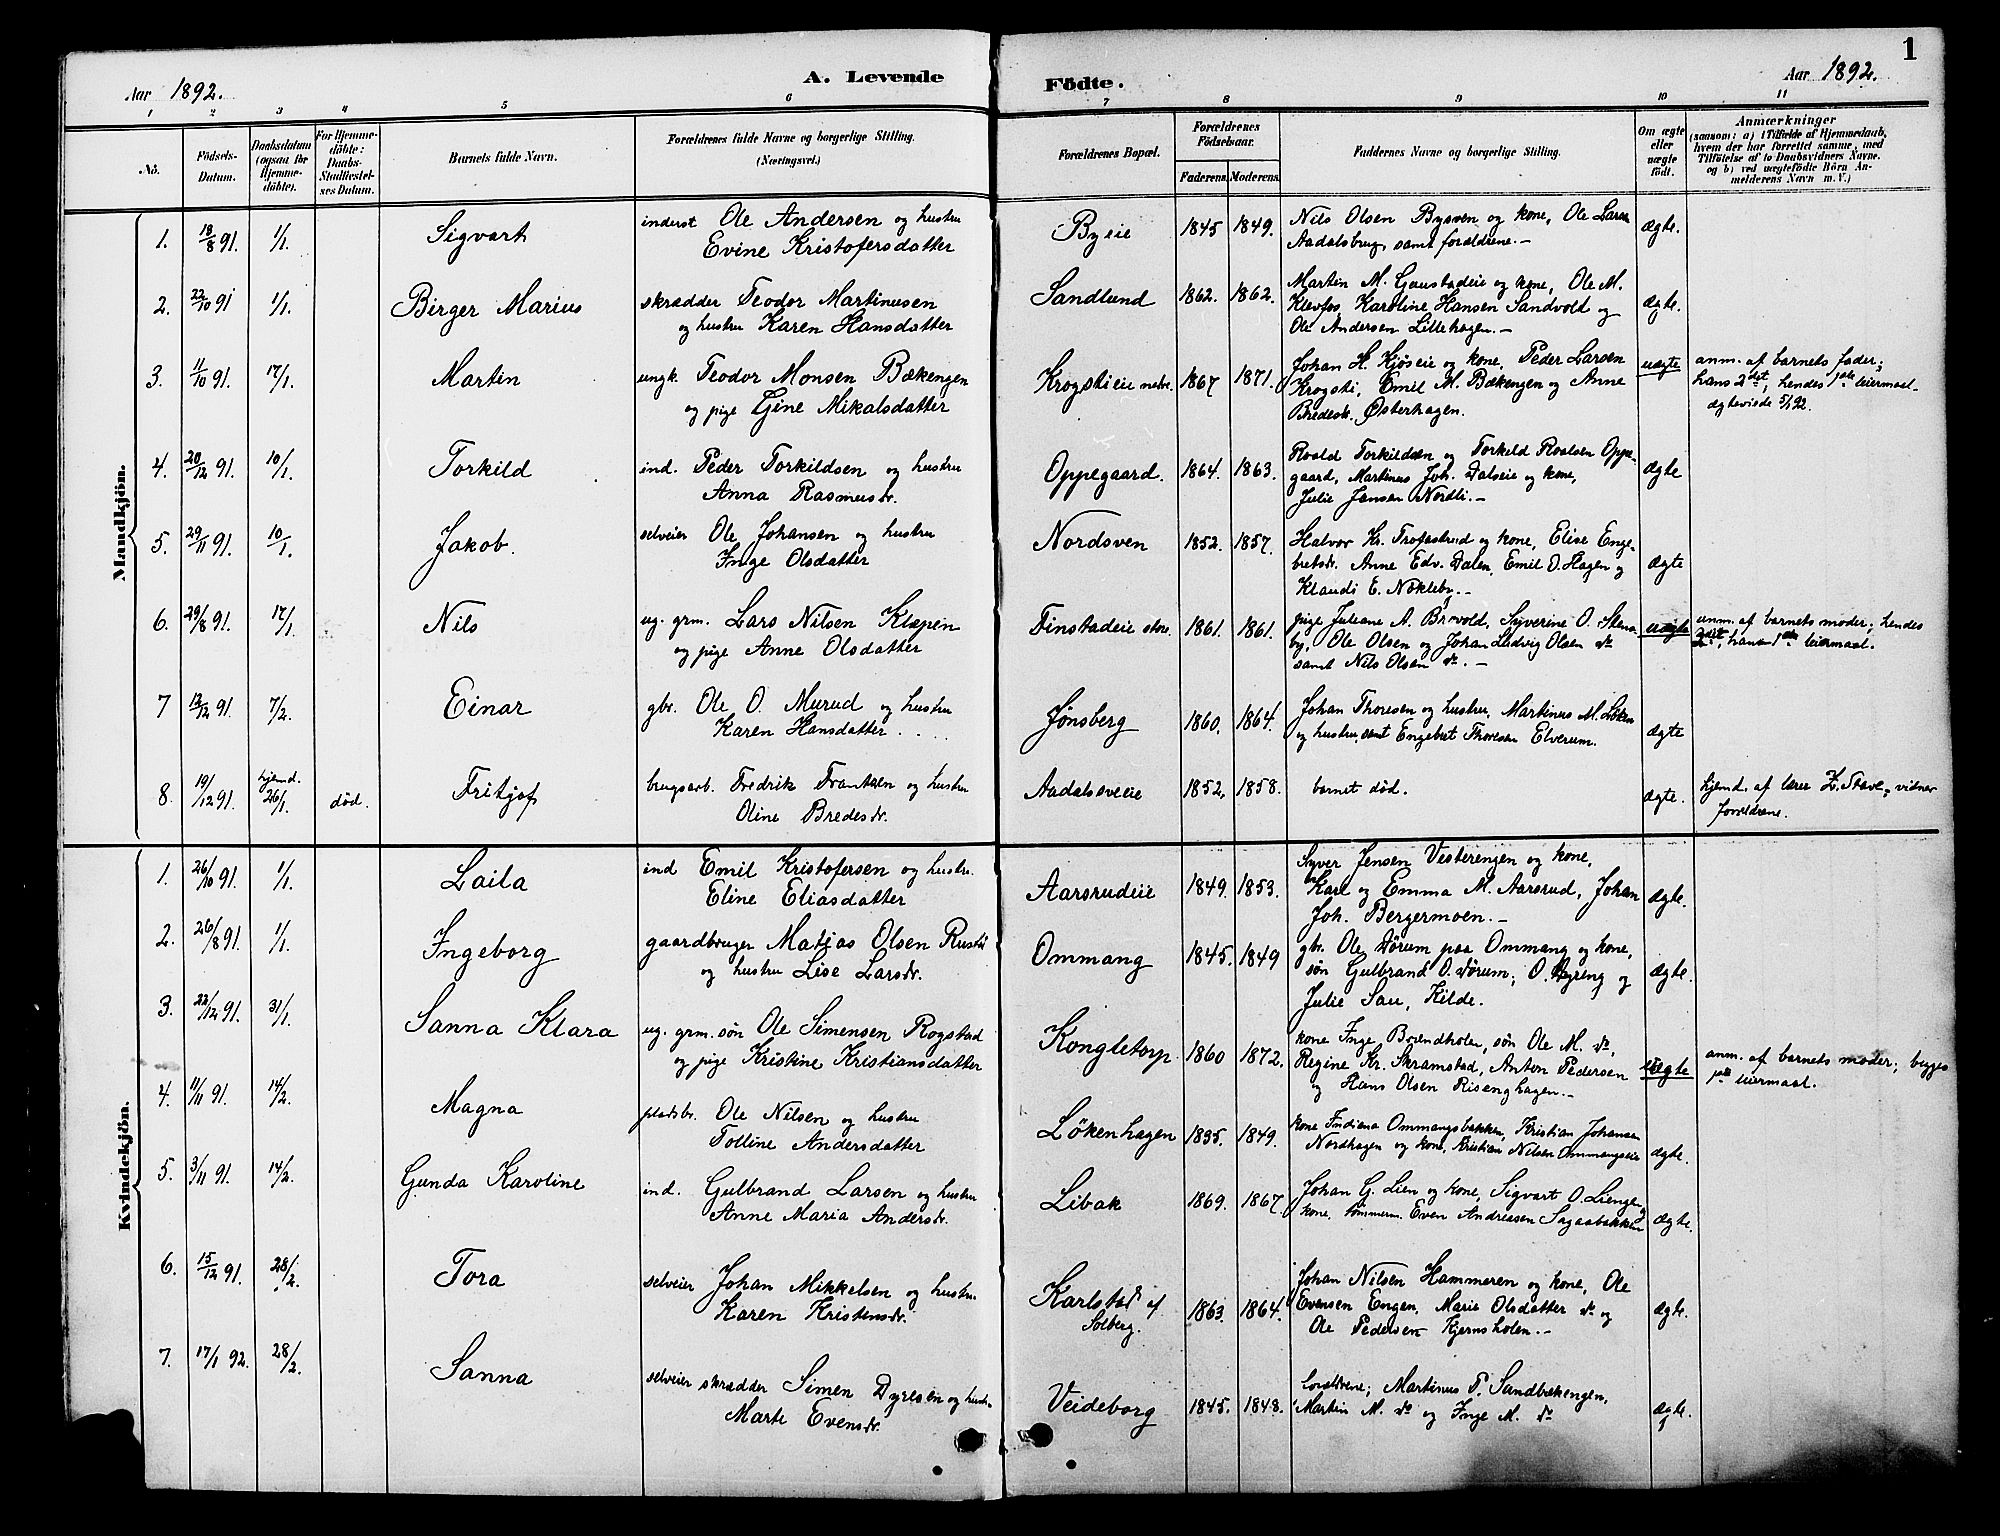 1
Aar 1892.
A. Levende
Födte.
Aar 1892.
1 2 3 4 5 6 7 8 9 10 11
No.
Födsels-
Datum.
Daabsdatum
(ogsaa for
Hjemme-
döbte).
For Hjemme-
döbte:
Daabs-
Stadfæstel-
ses Datum.
Barnets fulde Navn.
Forældrenes fulde Navne og borgerlige Stilling.
(Næringsvei.)
Forældrenes Bopæl.
Forældrenes
Födselsaar.
Faderens. Moderens.
Faddernes Navne og borgerlige Stilling.
Om ægte
eller
uægte
födt.
Anmærkninger
(saasom: a) i Tilfælde af Hjemmedaab,
hvem der har forrettet samme, med
Tilföielse af to Daabsvidners Navne.
og b) ved uægtefödte Börn An-
melderens Navn m. V.)
Mandkjön.
1. 18/8 91. 1/1. Sigvart
inderst Ole Andersen og hustru
Evine Kristofersdatter
Byeie 1845 1849.
Nils Olsen Bysven og kone, Ole Larsen
Aadalsbrug, samt forældrene.–
ægte.
2. 22/10 91 1/1. Birger Marius
skrædder Teodor Martinusen
og hustru Karen Hansdatter
Sandlund 1862. 1862.
Martin M. Gaustadeie og kone, Ole M.
Klevfos, Karoline Hansen Sandvold og
Ole Andersen Lillehagen.–
ægte.
3. 11/10 91. 17/1. Martin
ungk. Teodor Monsen Bækengen
og pige Gine Mikalsdatter
Krogstieie nedre. 1867 1871.
Johan H. Kjöseie og kone, Peder Larsen
Krogsti, Emil M. Bækengen og Anne
Bredesdr. Østerhagen.
uægte
anm. af barnets fader;
hans 2det, hendes 1ste leiermaal.
ægteviede 5/1 92.
4. 20/12 91. 10/1. Torkild
ind. Peder Torkildsen og hustru
Anna Rasmusdr.
Oppegaard. 1864. 1863.
Roald Torkildsen og Torkild Roalsen Oppe-
gaard, Martinus Joh. Dalseie og kone,
Julie Jansen Nordli.–
ægte
5. 29/11 91. 10/1. Jakob.
selveier Ole Johansen og hustru
Inge Olsdatter
Nordsven 1852. 1857.
Halvor Kr. Trofastrud og kone, Elise Enge-
bretsdr. Anne Edv. Dalen, Emil O. Hagen og
Klaudi E. Nökleby.–
ægte
6. 29/8 91. 17/1. Nils
ug. grm. Lars Nilsen Klæpen
og pige Anne Olsdatter
Finstadeie store. 1861. 1861.
pige Juliane A. Brovold, Syverine O. Stens-
by, Ole Olsen og Johan Ludvig Olsen do
samt Nils Olsen do.–
uægte
anm. af barnets moder; hendes
2det, hans 1ste leiermaal.
7 13/12 91. 7/2. Einar
gbr. Ole O. Murud og hustru
Karen Hansdatter . . . .
Jønsberg 1860. 1864.
Johan Thoresen og hustru, Martinus M. Löken
og hustru, samt Engebret Thoresen Elverum.
ægte
8. 19/12 91. hjemd. 26/1. död. Fritjof
brugsarb. Fredrik Frantsen og hustru
Oline Bredesdr.
Aadalseveie 1852. 1858.
barnet död.
ægte.
hjemd. af lærer Z. Stave, vidner
forældrene.
Kvindekjön.
1. 26/10 91. 1/1. Laila
ind Emil Kristofersen og hustr.
Eline Eliasdatter
Aarsrudeie 1849. 1853.
Syver Jensen Vesterengen og kone,
Karl og Emma M. Aarsrud, Johan
Joh. Bergermoen.–
ægte.
2. 26/8 91. 1/1. Ingeborg
gaardbruger Matias Olsen Rustad
og hustru Lise Larsdr.
Ommang 1845. 1849
gbr. Ole Dörum paa Ommang og kone,
søn Gulbrand O. Dörum; O. Nyreng og
Julie Sau, Kilde.
ægte.
3. 22/12 91. 31/1. Sanna Klara
ug. grm. søn Ole Simensen Rogstad
og pige Kristine Kristiansdatter
Kongletorp. 1860 1872.
kone Inge Brendholen, søn Ole M. do,
Regine Kr. Skramstad, Anton Pedersen
og Hans Olsen Risenghagen.–
uægte
anm. af barnets moder; begges
1ste leiermaal.
4. 11/11 91. 14/2. Magna
pladsbr. Ole Nilsen og hustru
Tolline Andersdatter
Lökenhagen 1835. 1849.
kone Indiana Ommangsbakken, Kristian Johansen
Nordhagen og kone, Kristian Nilsen Ommangseie
ægte.
5. 3/11 91. 14/2. Gunda Karoline
ind. Gulbrand Larsen og hustru
Anne Maria Andersdr.
Libak 1869. 1867.
Johan G. Lien og kone, Sigvart O. Lienge og
kone, tømmerm. Even Andreasen Sagaabakken
ægte.
6. 15/12 91. 28/2. Tora
selveier Johan Mikkelsen og hustru
Karen Kristensdr.
Karlstad af
Solberg. 1863. 1864.
Johan Nilsen Hammeren og kone, Ole
Evensen Engen, Marie Olsdatter do og
Ole Pedersen Kjernsholen.–
ægte.
7. 17/1 92. 28/2. Sanna
selveier skrædder Simen Dyresen og hustru
Marte Evensdr.
Veideborg 1845. 1848.
forældrene; Martinus P. Sandbækengen,
Martin M. do og Inge M. do
ægte.